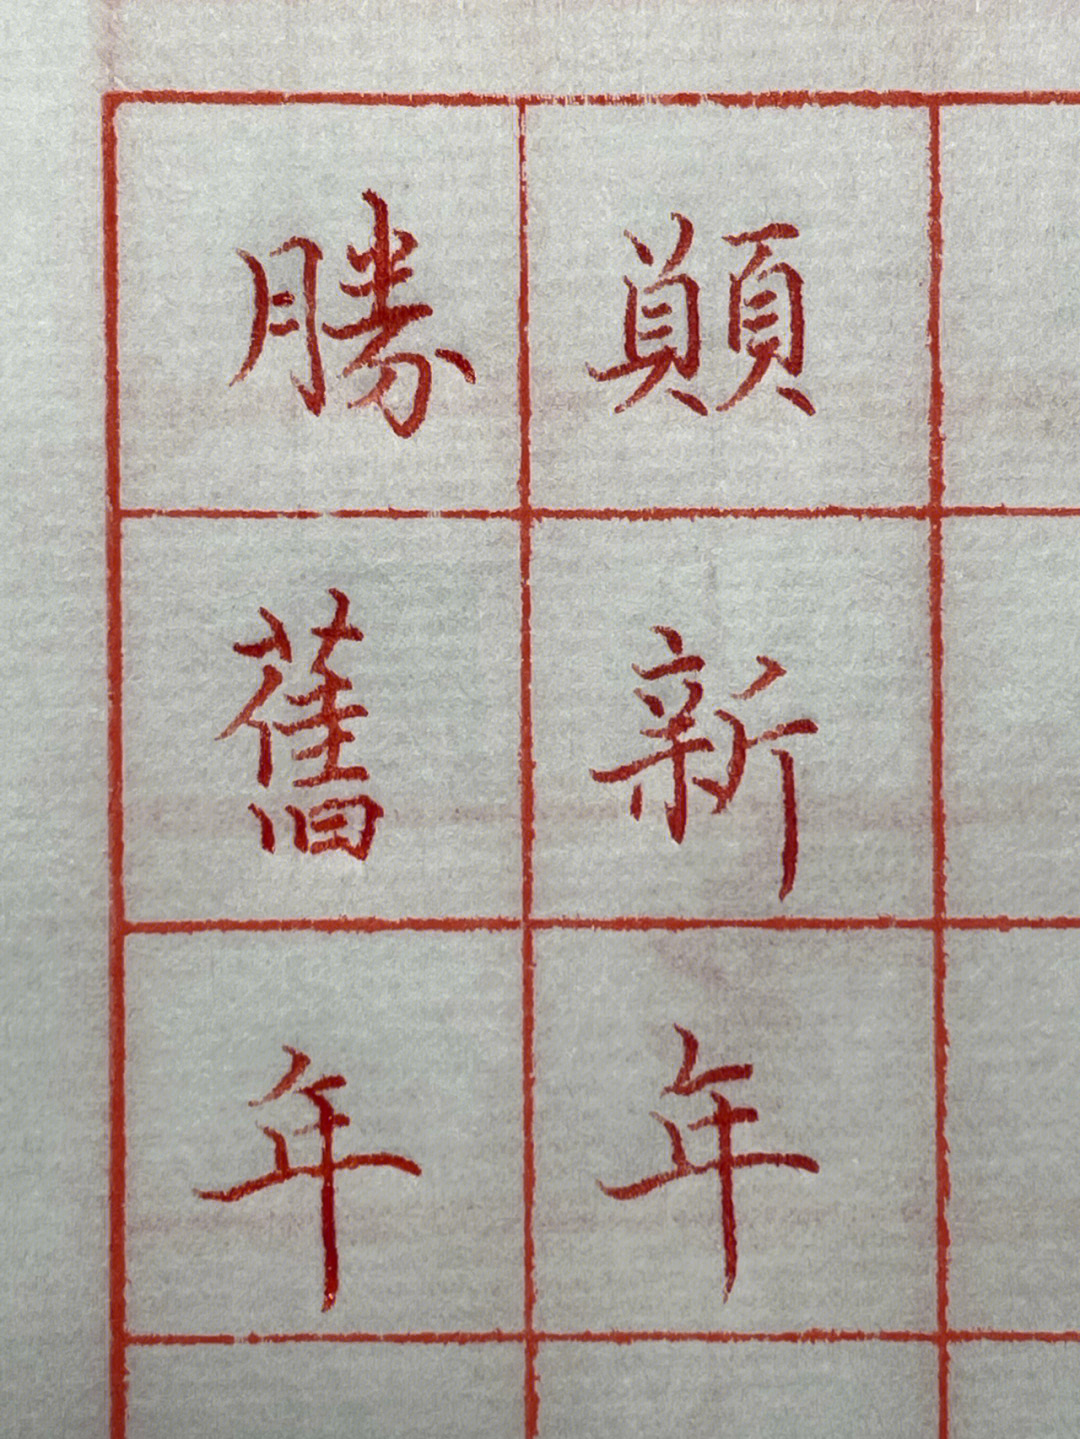 願新年
勝舊年